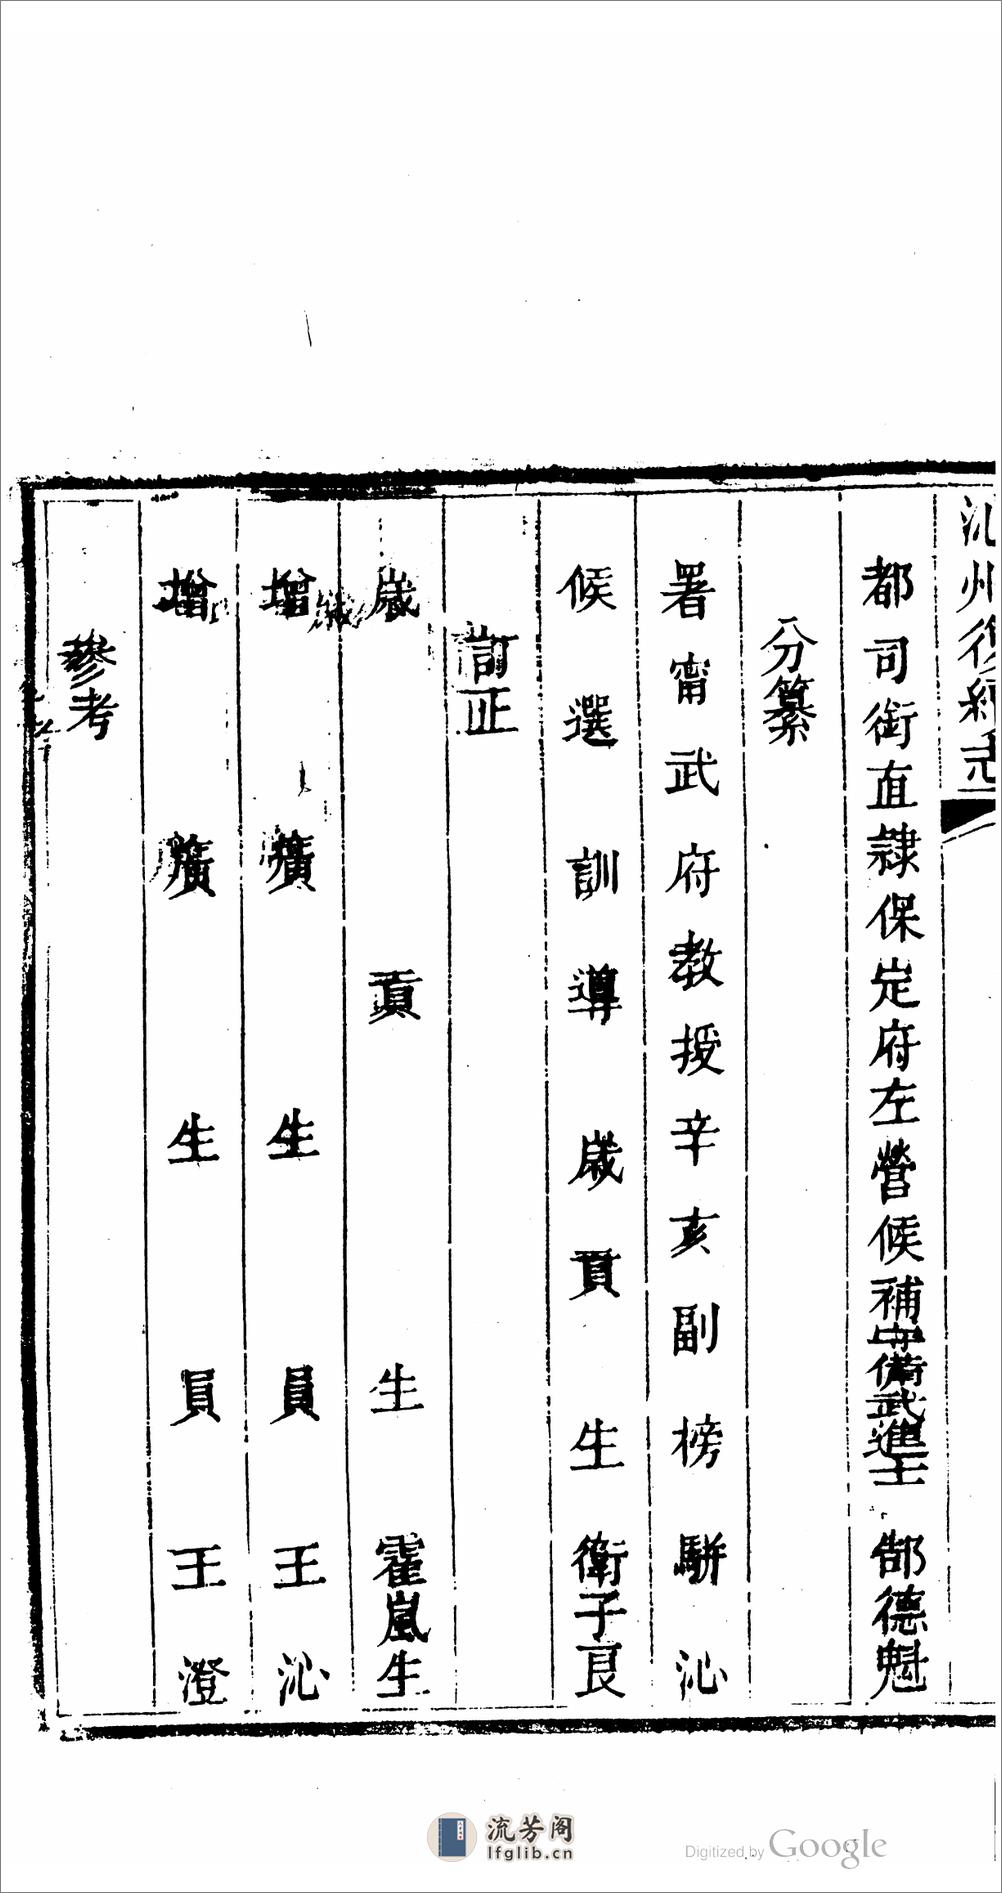 沁州復續志
都司銜直隸保定府左營候補守備武進士 郜德魁
分纂
署甯武府教授辛亥副榜駢沁
候選訓導歲貢生衛子良
訂正
歲貢生霍嵐生
增廣生員王沁
增廣生員王澄
參考
流芳阁
lfglib.cn
Digitized by Google